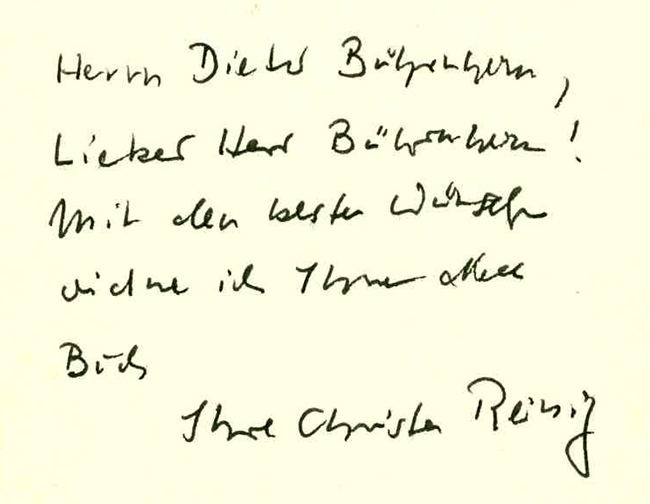 Herrn Dieter
Lieber Herr !
Mit den besten Wünschen
widme ich Ihnen dieses
Buch
Ihre Christa Reinig